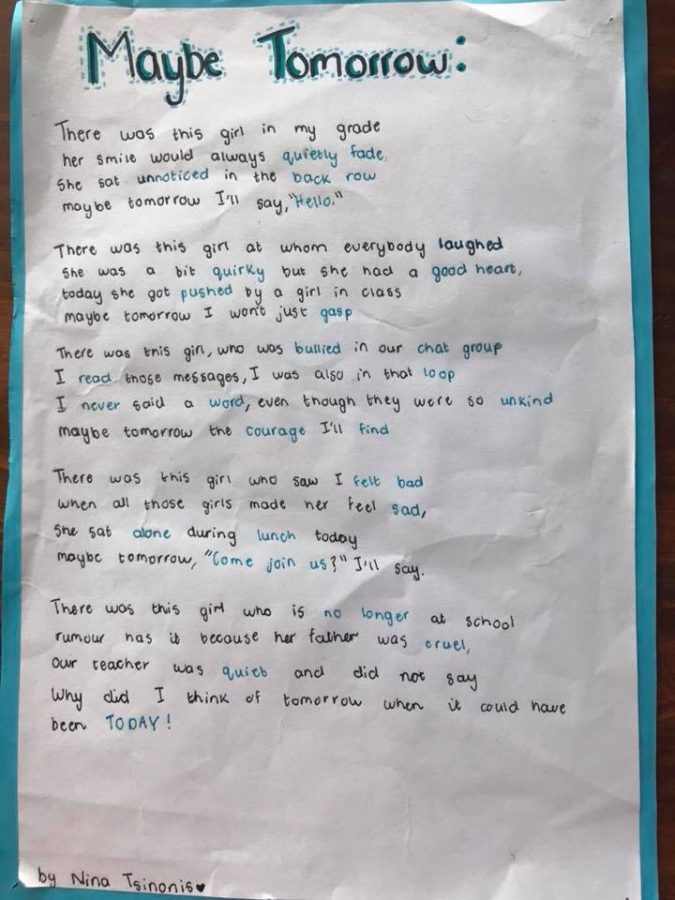 Maybe Tomorrow:
There was this girl in my grade
her smile would always quietly fade,
She sat unnoticed in the back row
maybe tomorrow I'll say, "Hello."
There was this girl at whom everybody laughed
She was a bit quirky but she had a good heart,
today she got pushed by a girl in class
maybe tomorrow I won't just gasp
There was this girl, who was bullied in our chat group
I read those messages, I was also in that loop
I never said a word, even though they were so unkind
maybe tomorrow the courage I'll find
There was this girl who saw I felt bad
when all those girls made her feel sad,
She sat alone during lunch today
maybe tomorrow, "Come join us?" I'll say.
There was this girl who is no longer at school
rumour has it because her father was cruel,
Our teacher was quiet and did not say
Why did I think of tomorrow when it could have
been TODAY!
by Nina Tsinonis♥